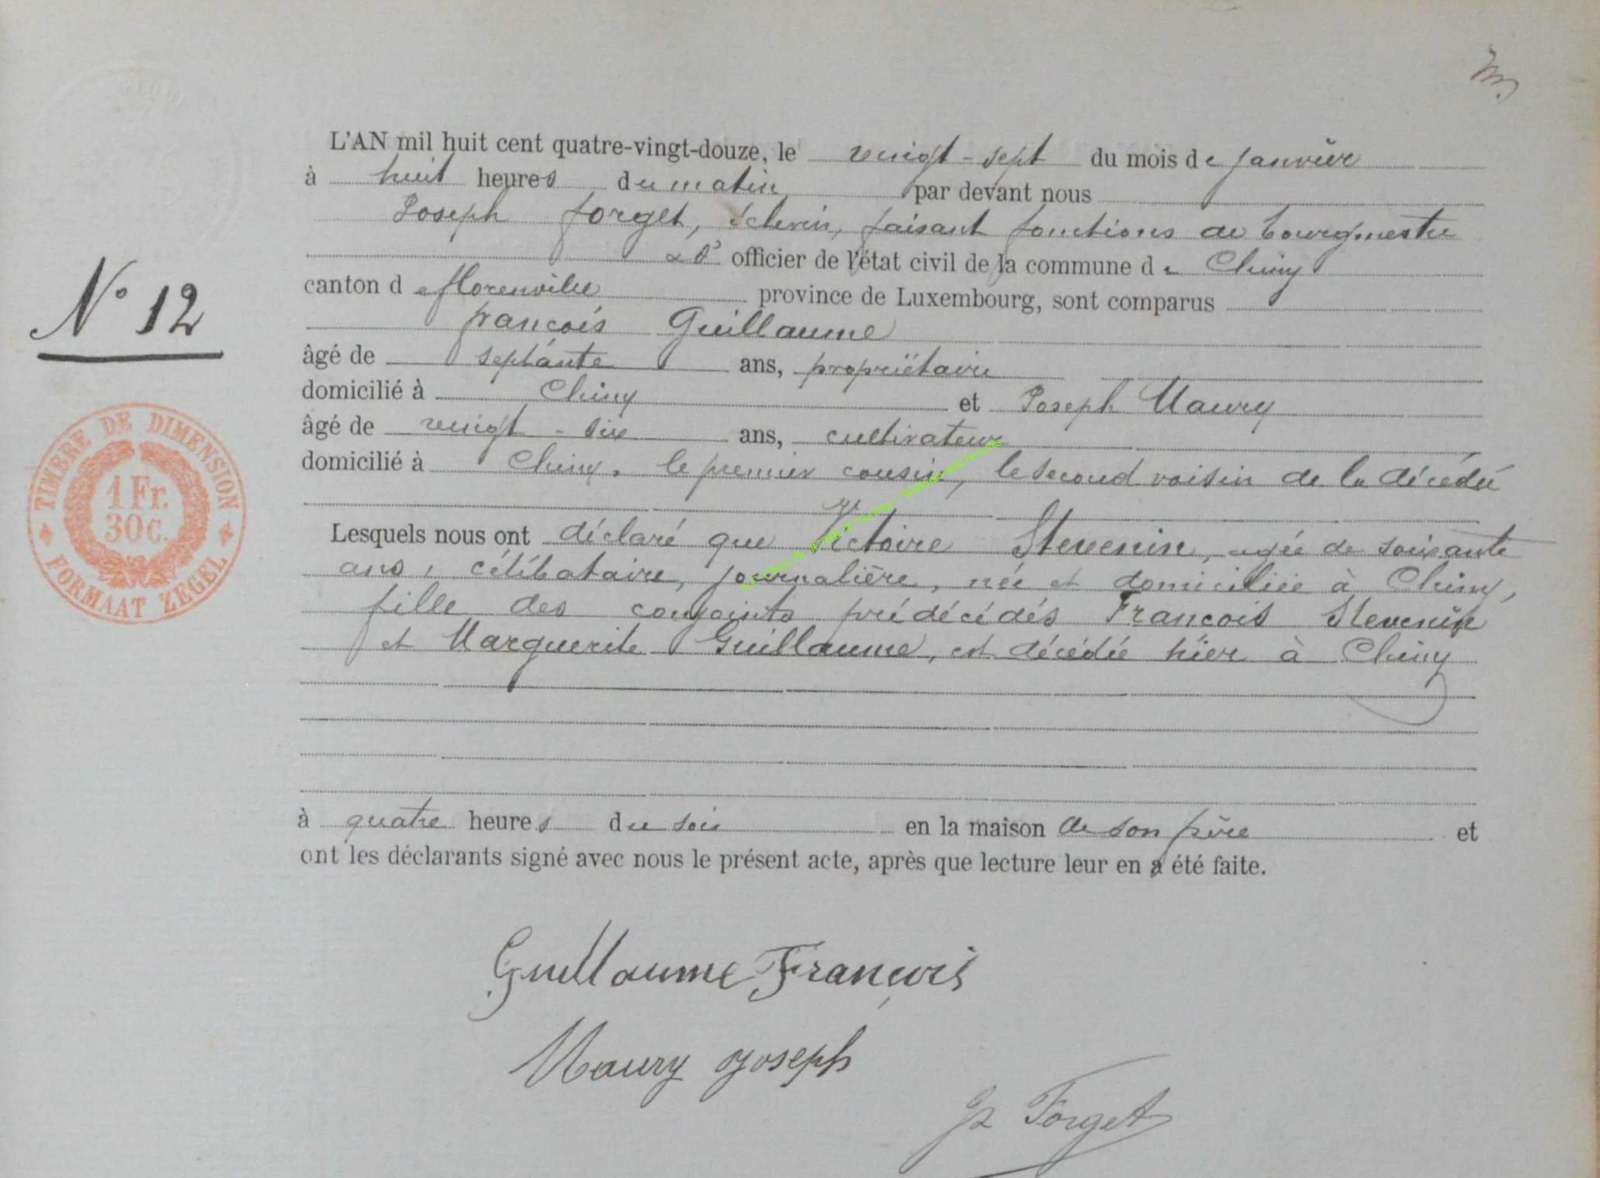 L'AN mil huit cent quatre-vingt-douze, le vingt-sept du mois de janvier
à huit heures du matin par devant nous
Joseph Forget, échevin, faisant fonctions de bourgmestre
officier de l'état civil de la commune de Chiny
canton de Florenville province de Luxembourg, sont comparus
françois Guillaume
âgé de septante ans, propriétaire
domicilié à Chiny et Joseph Maury
âgé de vingt-six ans, cultivateur
domicilié à Chiny, le premier cousin, le second voisin de la décédée
Lesquels nous ont déclaré que Victoire Stevenin, agée de soixante
ans, célibataire, journalière, née et domiciliée à Chiny,
fille des conjoints prédécédés François Stevenin
et Marguerite Guillaume, est décédée hier à Chiny
à quatre heures du soir en la maison de son père et
ont les déclarants signé avec nous le présent acte, après que lecture leur en a été faite.
Guillaume François
Maury Joseph
Forget
N° 12
TIMBRE DE DIMENSION
1 Fr.
30 C.
FORMAAT ZEGEL